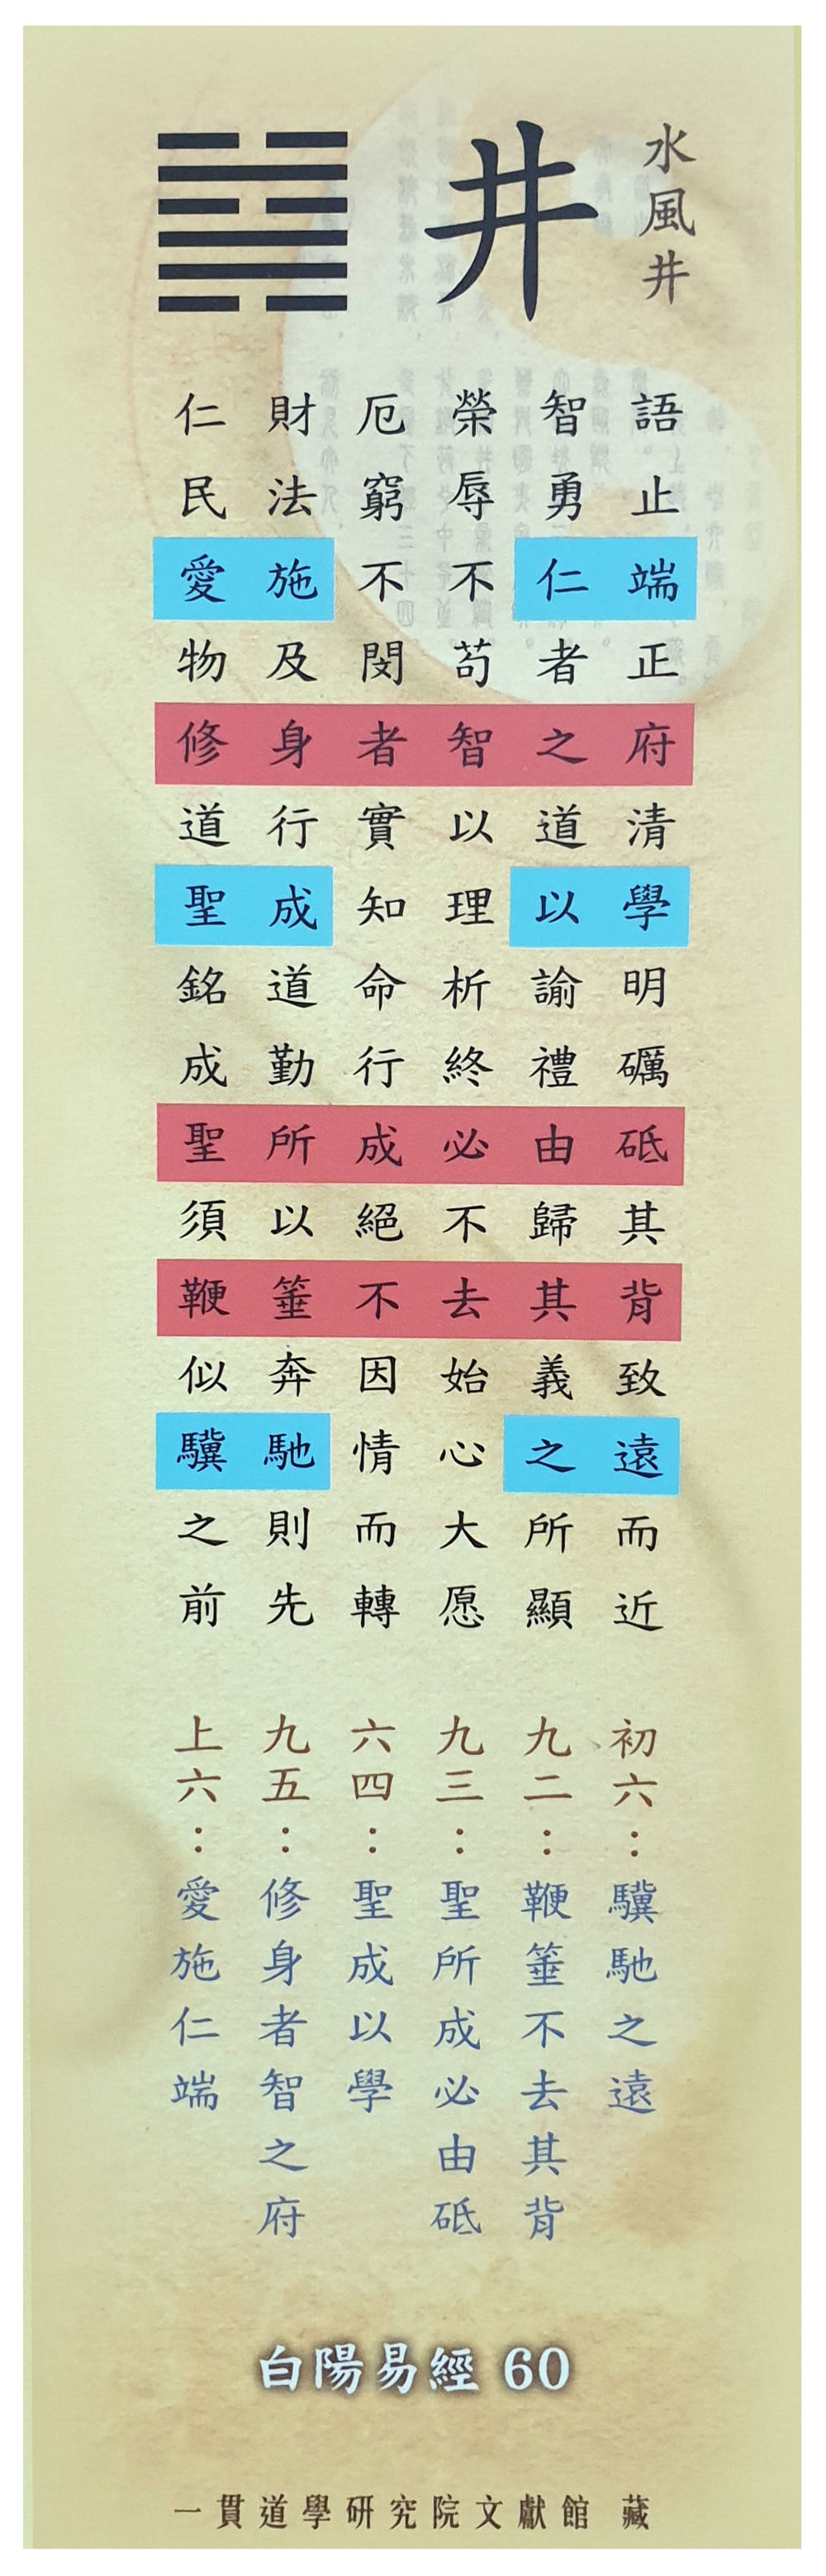 水風井
井
語止端正府清學明礪砥其背致遠而近
智勇仁者之道以諭禮由歸其義之所顯
榮辱不苟智以理析終必不去始心大愿
厄窮不閔者實知命行成絕不因情而轉
財法施及身行成道勤所以箠奔馳則先
仁民愛物修道聖銘成聖須鞭似驥之前
初六：驥馳之遠
九二：鞭箠不去其背
九三：聖所成必由砥
六四：聖成以學
九五：修身者智之府
上六：愛施仁端
白陽易經 60
一貫道學研究院文獻館 藏